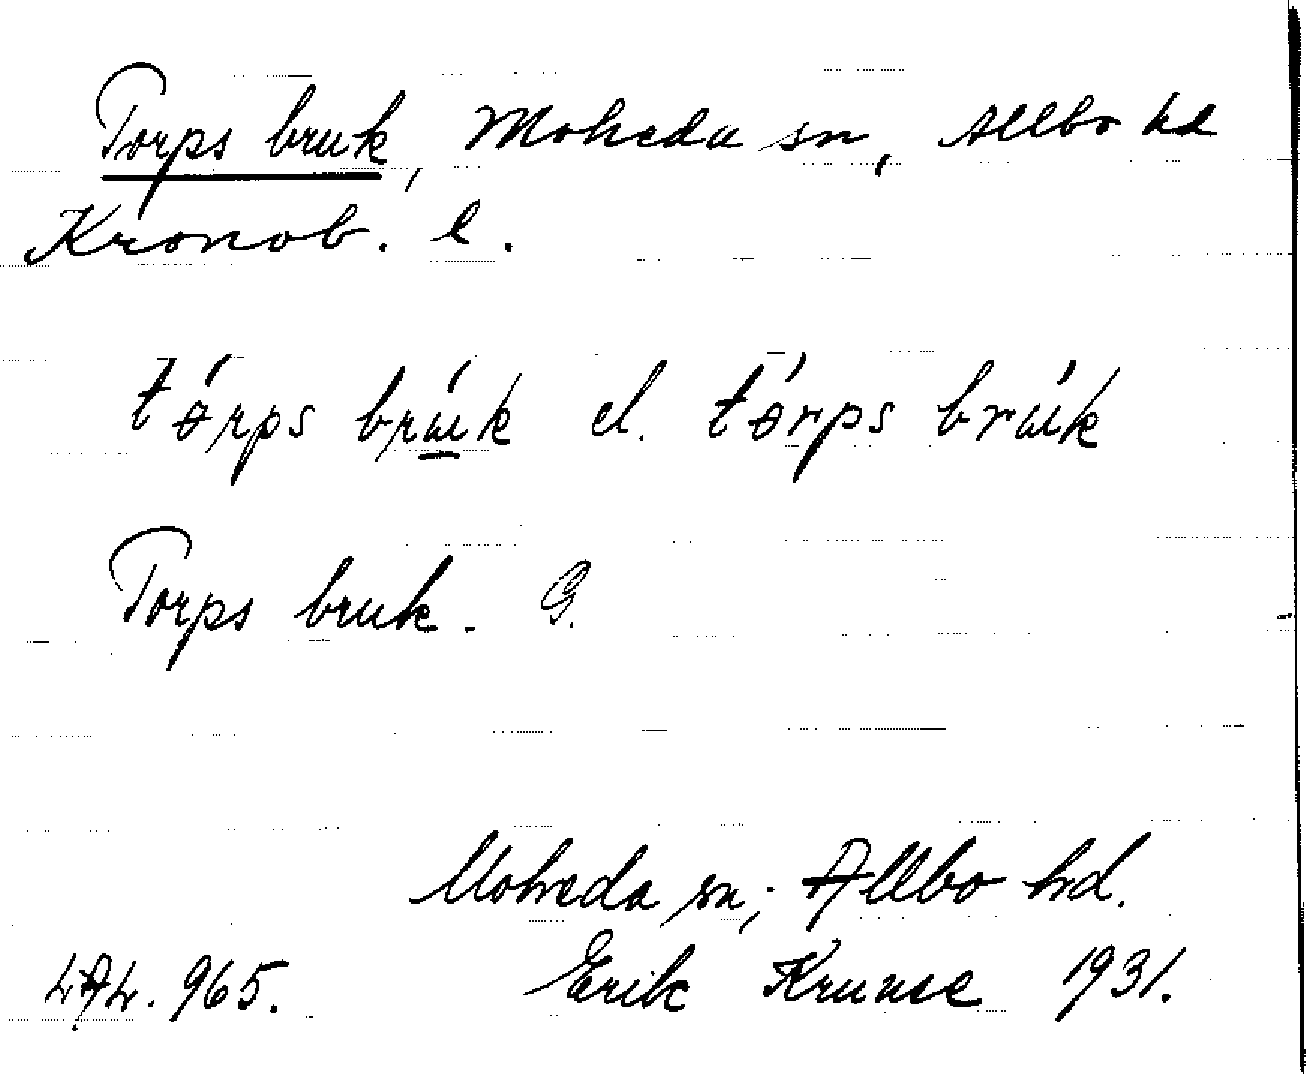 Torps bruk, Moheda sn, Allbo hd
Kronob. l.
tɵ́rps brúk el. tɵ́rps brúk
Torps bruk. G.
Moheda sn; Allbo hd.
LAL. 965. Erik Kruuse 1931.